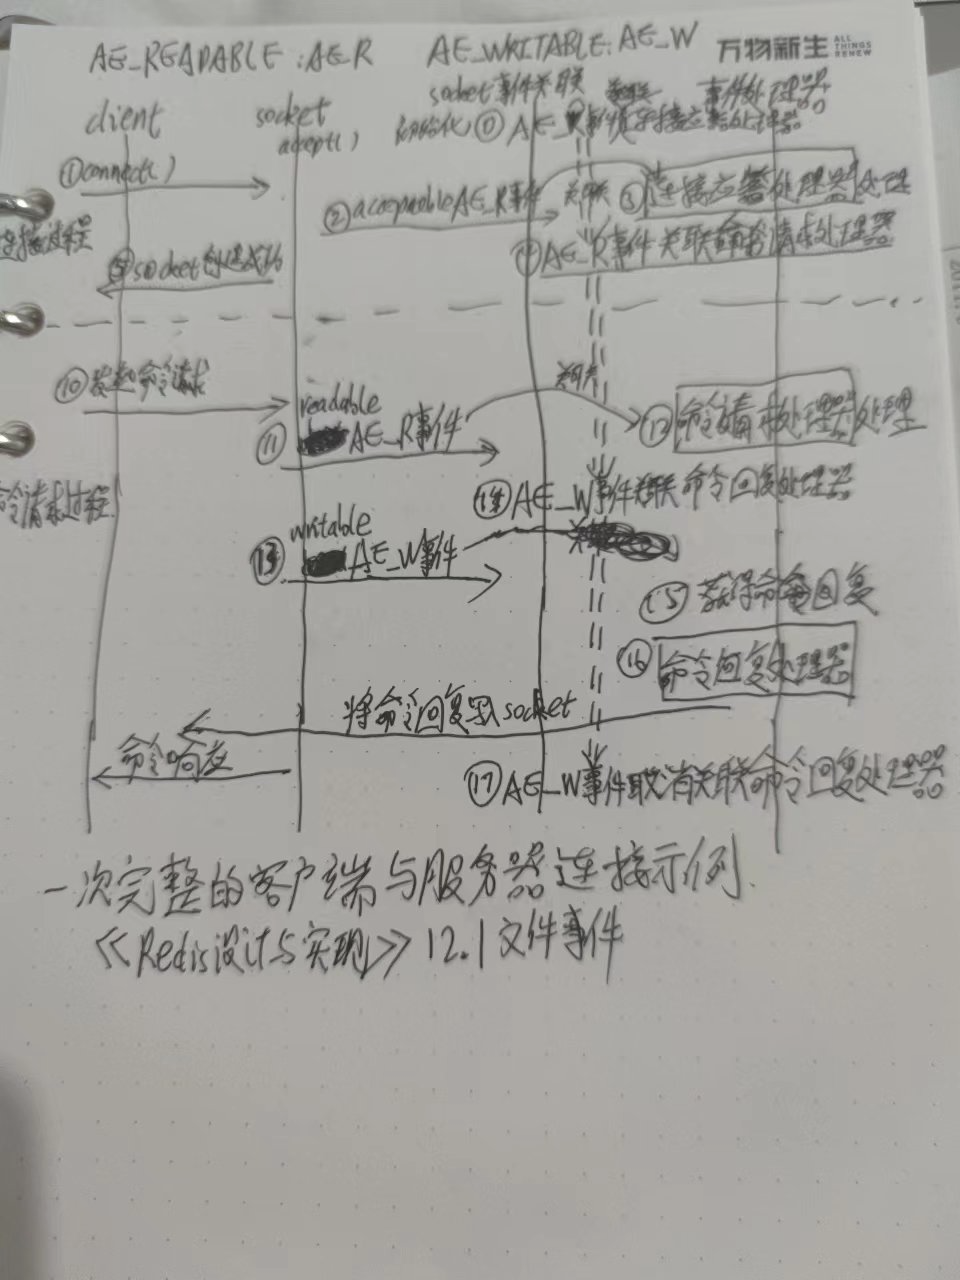 AE_READABLE:AE_R AE_WRITABLE:AE_W 万物新生 ALL THINGS RENEW
client socket socket事件关联 事件处理器
accept()
初始化 ⓪ AE_R事件 连接应答处理器
①connect()
② acceptableAE_R事件 关联 ③ 连接应答处理器处理
连接过程
④ AE_R事件关联命令请求处理器
socket创建成功
⑩ 发起命令请求 关联
readable
⑪ AE_R事件 ⑫ 命令请求处理器处理
命令请求过程
⑭ AE_W事件关联命令回复处理器
writable
⑬ AE_W事件
⑮ 获得命令回复
⑯ 命令回复处理器
将命令回复写入socket
命令响应
⑰ AE_W事件取消关联命令回复处理器
一次完整的客户端与服务器连接示例.
《Redis设计与实现》12.1文件事件